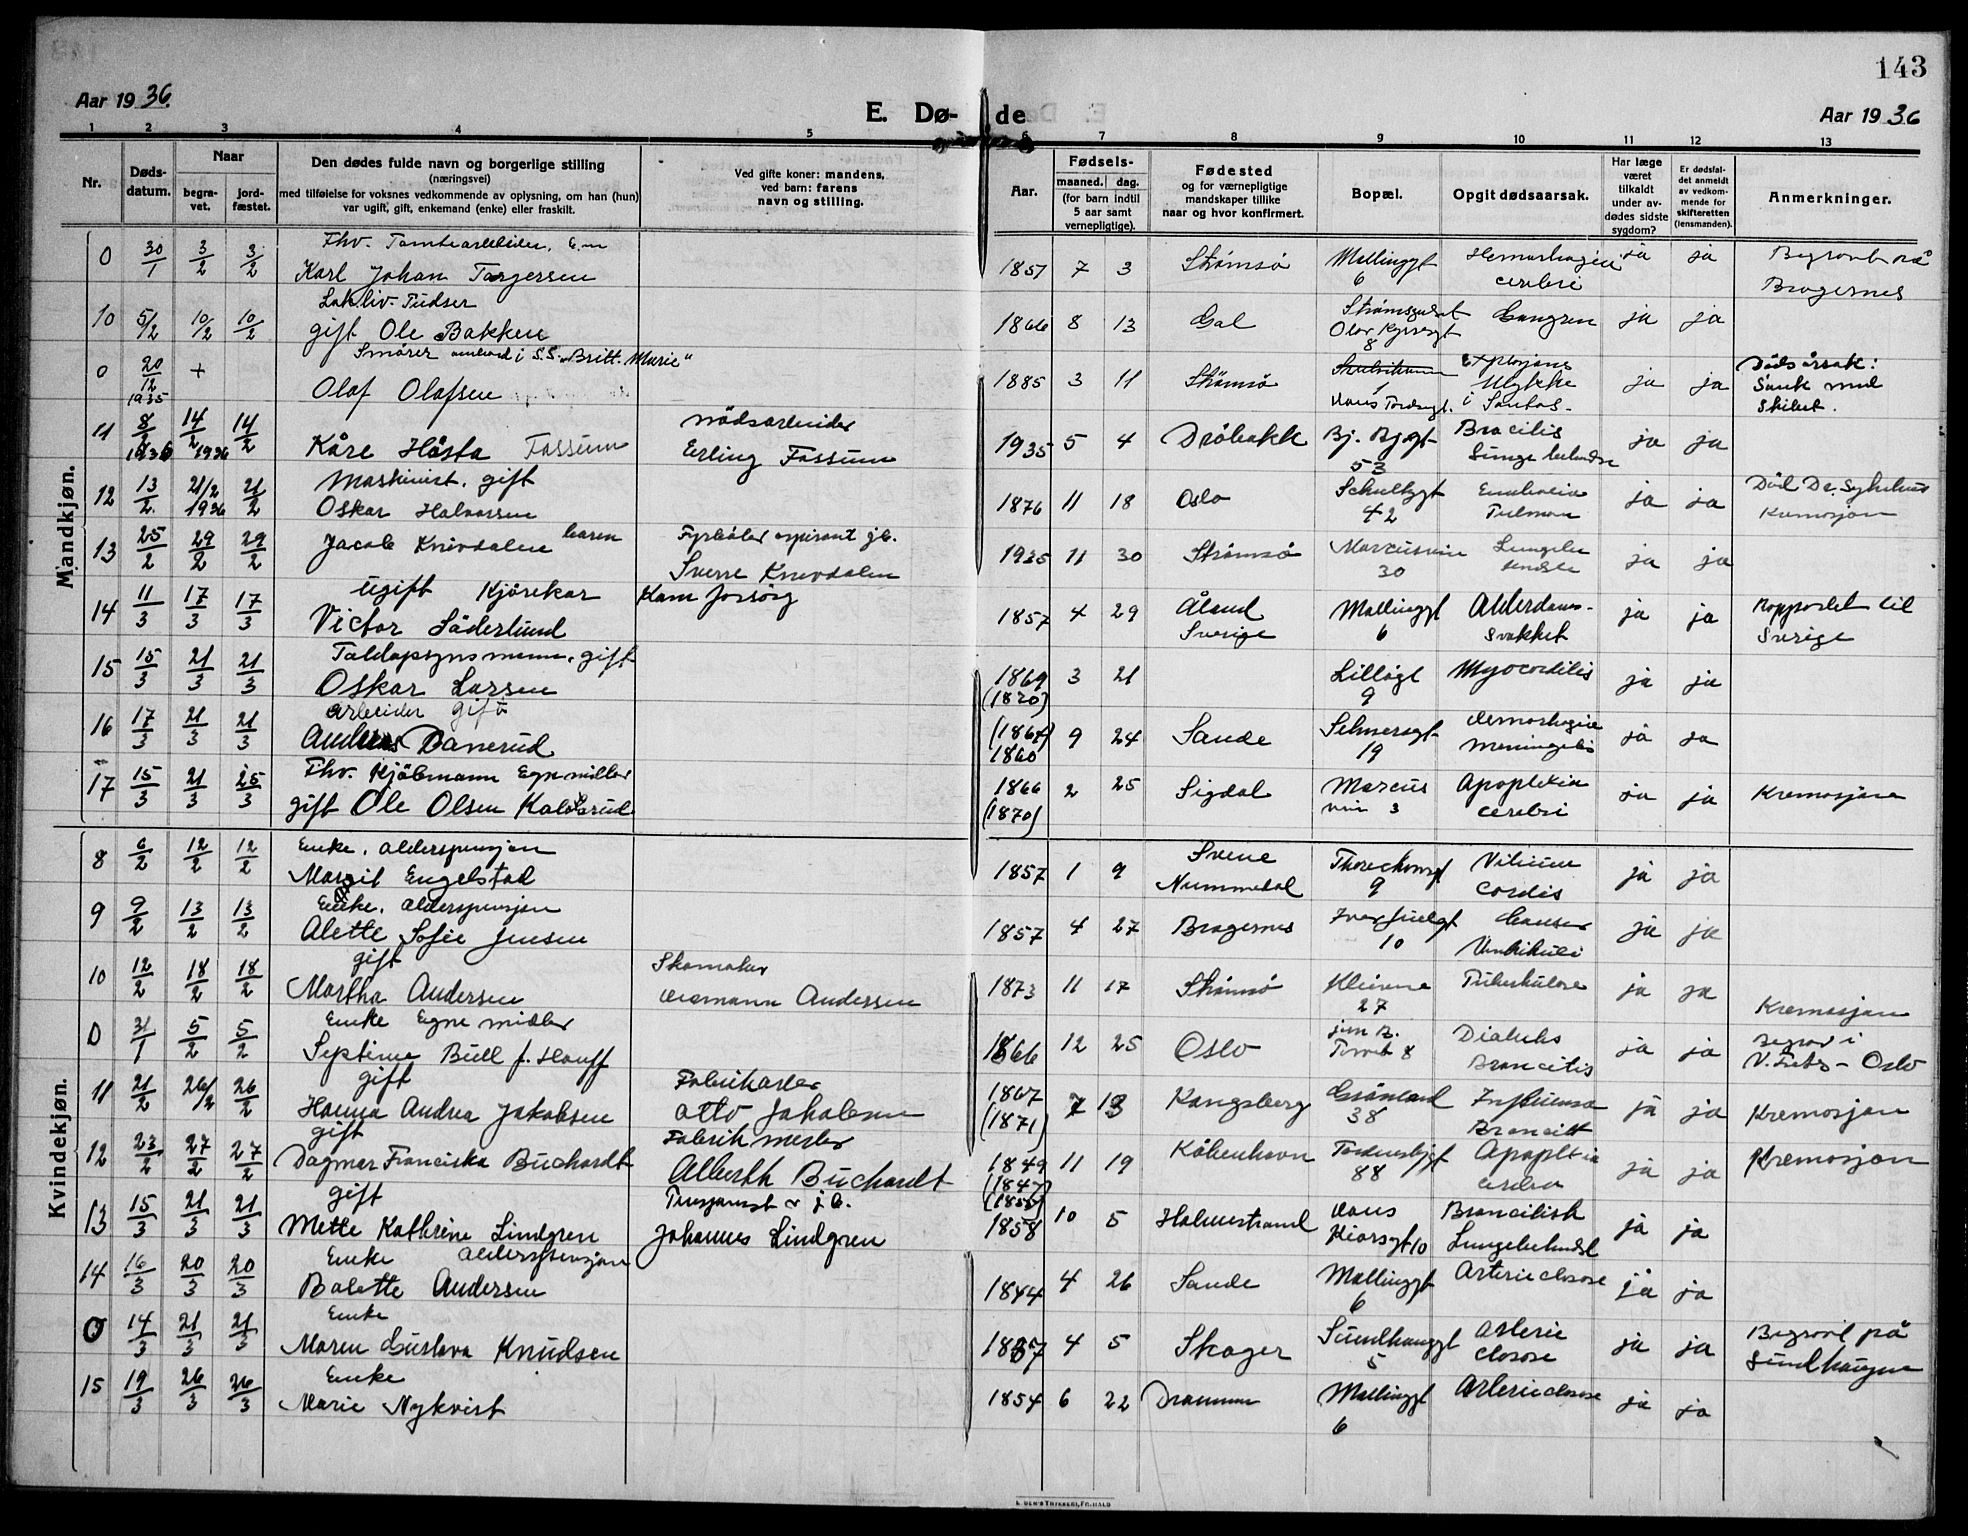 143
Aar 1936.
E. Dø-de
Aar 1936
1 2 3 4 5 6 7 8 9 10 11 12 13
Nr.
Døds-datum.
Naar
begra-vet.
jord-fæstet.
Den dødes fulde navn og borgerlige stilling
(næringsvei)
med tilføielse for voksnes vedkommende av oplysning, om han (hun)
var ugift, gift, enkemand (enke) eller fraskilt.
Ved gifte koner: mandens,
ved barn: farens
navn og stilling.
Aar.
Fødsels-
maaned. dag.
(for barn indtil
5 aar samt
vernepligtige).
Fødested
og for værnepligtige
mandskaper tillike
naar og hvor konfirmert.
Bopæl.
Opgit dødsaarsak.
Har læge
været
tilkaldt
under av-
dødes sidste
sygdom?
Er dødsfal-
det anmeldt
av vedkom-
mende for
skifteretten
(lensmanden).
Anmerkninger.
Mandkjøn.
0 30/1 3/2 3/2 Fhv. Tomtearbeider. E.m
Karl Johan Torgersen 1857 7 3 Strømsø Mallinggt 6 Hemorhagia cerebri ja ja Begravet på Bragernes
10 5/2 10/2 10/2
gift Ole Bakken 1866 8 13 Gol Olav Kyrresgt 8 Gangren ja ja
0 20/12 1935 + Smører ombord i S.S. „Britt. Marie"
Olaf Olafsen 1885 3 11 Strømsø Hans Tordsgt. Explosjons Ulykke i Santos. ja ja Dødsårsak: Sank med Skibet.
11 8/2 1936 14/2 1936 14/2 nødsarbeider
Kåre Håsta Fossum Erling Fossum 1935 5 4 Drøbakk Bj. Bj.gt 53 ja ja
12 13/2 21/2 1936 21/2 Maskinist. gift
Oskar Halvorsen 1876 11 18 Oslo Schultzgt 42 ja ja Død Dr. Sykehus Kremasjon
13 25/2 29/2 29/2 Jacob Knivdalen barn Fyrbøter aspirant
Sverre Knevdalen 1935 11 30 Strømsø 30 ja ja
14 11/3 17/3 17/3 ugift Kjørekar
Victor Söderlund 1857 4 29 Åland Sverige Mallinggt 6 Alderdoms-svakhet ja ja Rapportet til Sverige
15 15/3 21/3 21/3 Toldopsynsmann. gift
Oskar Larsen 1869 (1870) 3 21 Lilløgt 9 Myocorditis ja ja
16 17/3 21/3 21/3 arbeider gift
Andreas Danerud 1860 9 24 Sande Selmersgt 19 ja ja
17 15/3 21/3 25/3 Fhv. Kjøbmann Egne midler
gift Ole Olsen Kolbsrud 1866 (1870) 2 25 Sigdal Marcus 3 Apoplexia cerebri ja ja Kremasjon
Kvindekjøn.
8 6/2 12/2 12/2 Enke. alderspensjon
Margit Engelstad 1857 1 9 Svene Nummedal 9 Vitium Cordis ja ja
9 9/2 13/2 13/2 Enke. alderspensjon
Alette Sofie Jensen 1857 4 27 Bragernes 10 Cancer Ventrikuli ja ja
10 12/2 18/2 18/2 gift Skomaker
Martha Andersen Hermann Andersen 1873 11 17 Strømsø 27 Tuberkulose ja ja Kremasjon
0 31/1 5/2 5/2 Enke Egne midler
Septime Bull f. Hauff 1866 12 25 Oslo Torvet 8 Diabetes Broncitis ja ja Begrav i V. Frels - Oslo
11 21/2 26/2 26/2 gift Fabrikarb.
Hanna Andrea Jakobsen Otto Jakobsen 1867 (1871) 7 13 Kongsberg Grønland 38 Influensa Broncitt ja ja Kremasjon
12 23/2 27/2 27/2 gift Fabrik mester
Dagmar Franciska Buchardt Alberth Buchardt 1849 (1847) 11 19 København 88 Apoplexia cerebra ja ja Kremasjon
13 15/3 21/3 21/3 gift
Mette Kathrine Lindgren Johannes Lindgren 1858 10 5 Holmestrand Hans Kiersgt 10 Broncitisk Lungebetendl ja ja
14 16/3 20/3 20/3 Enke alderspensjon
Bolette Andersen 1844 4 26 Sande Mallinggt 6 Arterieclosose ja ja
0 14/3 21/3 21/3 Enke
Maren Gustava Knudsen 1857 4 5 Skoger Sundhauggt 5 Arterie closose ja ja Begravet på Sundhaugen
15 19/3 26/3 26/3 Enke
Marie Nykvist 1854 6 22 Drammen Mallinggt 6 Arterieclosose ja ja